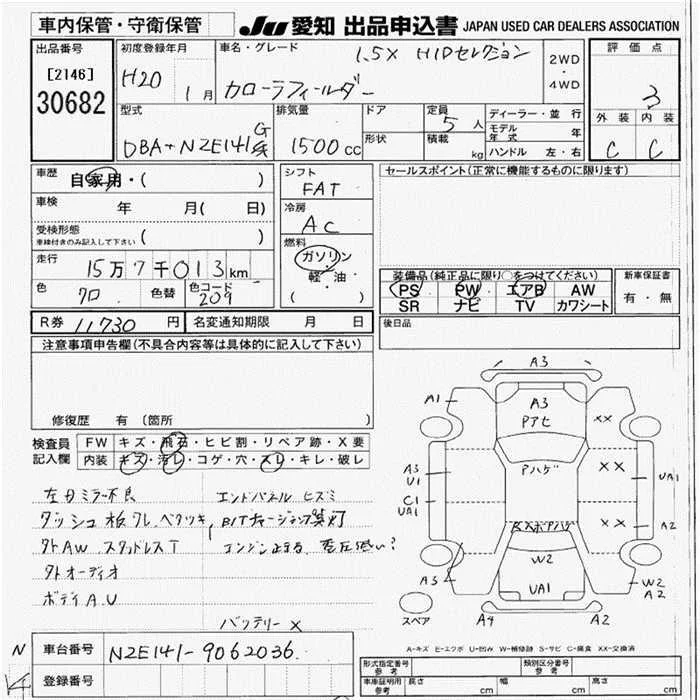 車内保管・守衛保管
JU 愛知 出品申込書 JAPAN USED CAR DEALERS ASSOCIATION
出品番号
[2146]
30682
初度登録年月
H20 1月
車名・グレード
1.5X HIDセレクション
カローラフィールダー
2WD
・
4WD
評価点
3
外装 内装
C C
型式
DBA-NZE141G
排気量
1500cc
ドア
形状
定員
5人
積載
kg
ディーラー・並行
モデル年式 年
ハンドル 左・右
車歴
自家用・( )
車検
年 月( 日)
受検形態
車検付きのみ記入して下さい ( )
走行
15万7千013km
色
クロ
色替
色コード
209
シフト
FAT
冷房
AC
燃料
ガソリン
軽・油・
( )
セールスポイント(正常に機能するものに限ります)
装備品(純正品に限り○をつけてください)
PS PW エアB AW
SR ナビ TV カワシート
新車保証書
有・無
R券 11730円
名変通知期限 月 日
後日品
注意事項申告欄(不具合内容等は具体的に記入して下さい)
修復歴 有 〔箇所 〕
検査員記入欄
FW キズ・飛石・ヒビ割・リペア跡・X要
内装 キズ・汚レ・コゲ・穴・スレ・キレ・破レ
左ドミラー不良
エンドパネル ヒズミ
ダッシュ板ワレ、ベタツキ
外AW スタッドレスT
外オーディオ
ボディA.U
バッテリーX
A3
A1
A3
Pアセ
XX
Pハゲ
A3
U1
XX
UA1
C1
UA1
XX
A2
W2
UA1
A3
W2
A2
スペア
A4
A2
A-キズ E-エクボ U-凹み W-補修跡 S-サビ C-腐食 XX-交換済
N
車台番号 NZE141-9062036
登録番号
形式指定番号
参考
類別区分番号
参考
車庫証明用
参考
長さ cm
幅 cm
高さ cm